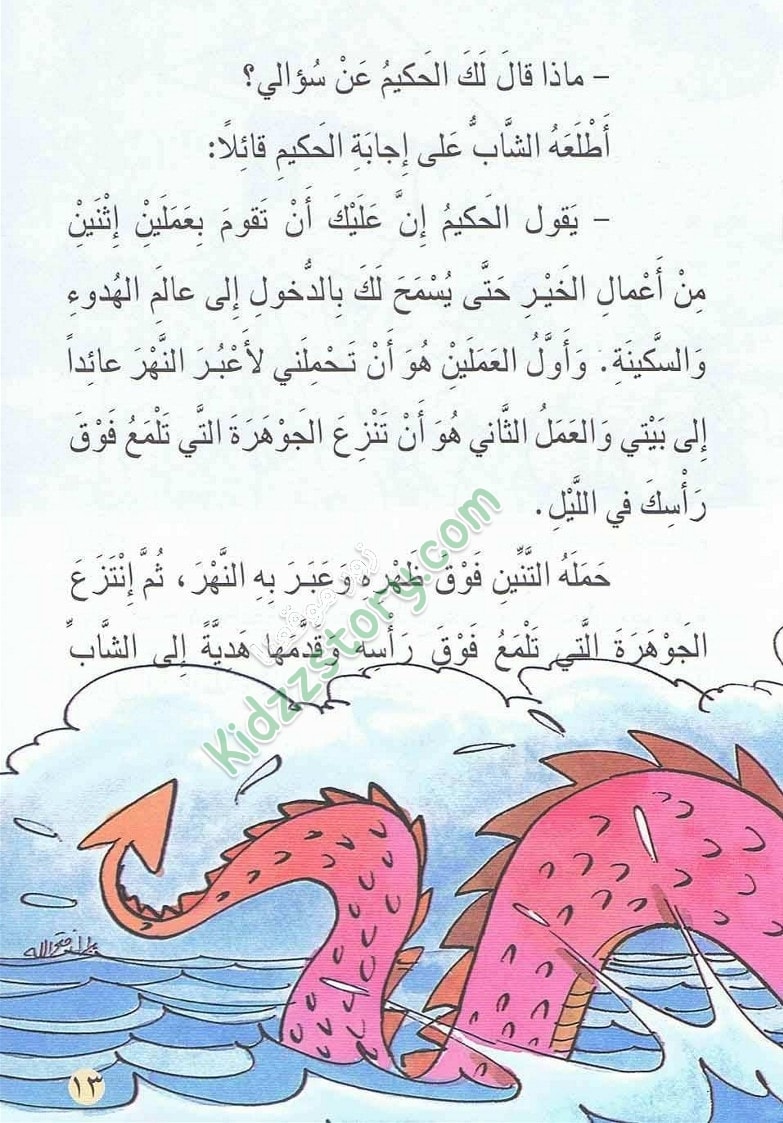 – ماذا قالَ لَكَ الَحَكيمُ عَنْ سُؤالي؟
أَطْلَعَهُ الشَّابُّ عَلى إِجابَةِ الَحَكيمِ قائِلًا:
– يَقول الَحَكيمُ إِنَّ عَلَيْكَ أَنْ تَقومَ بِعَمَلَينْ إِثْنَينْ
مِنْ أَعْمالِ الخَيْرِ حَتَّى يُسْمَحَ لَكَ بِالدُّخولِ إلى عالَمَ الهُدوءِ
وَالسَّكينَةِ. وَأَوَّلُ العَمَلَينْ هُوَ أَنْ تَحْمِلَني لأَعْبُرَ النَّهْرَ عائِداً
إِلى بَيْتي وَالعَمَلُ الثَّاني هُوَ أَنْ تَنْزِعَ الجَوْهَرَةَ التَّي تَلْمَعُ فَوْقَ
رَأْسِكَ في اللَّيْلِ.
حَمَلَهُ التَّنِّينِ فَوْقَ ظَهْرِهِ وعَبَرَ بِهِ النَّهْرَ، ثُمَّ إِنْتَزَعَ
الجَوْهَرَةَ الَّتي تَلْمَعُ فَوْقَ رَأْسه وَقدَّمها هَديَّةً إِلى الشَّابِّ
Kidzzstory.com
١٣